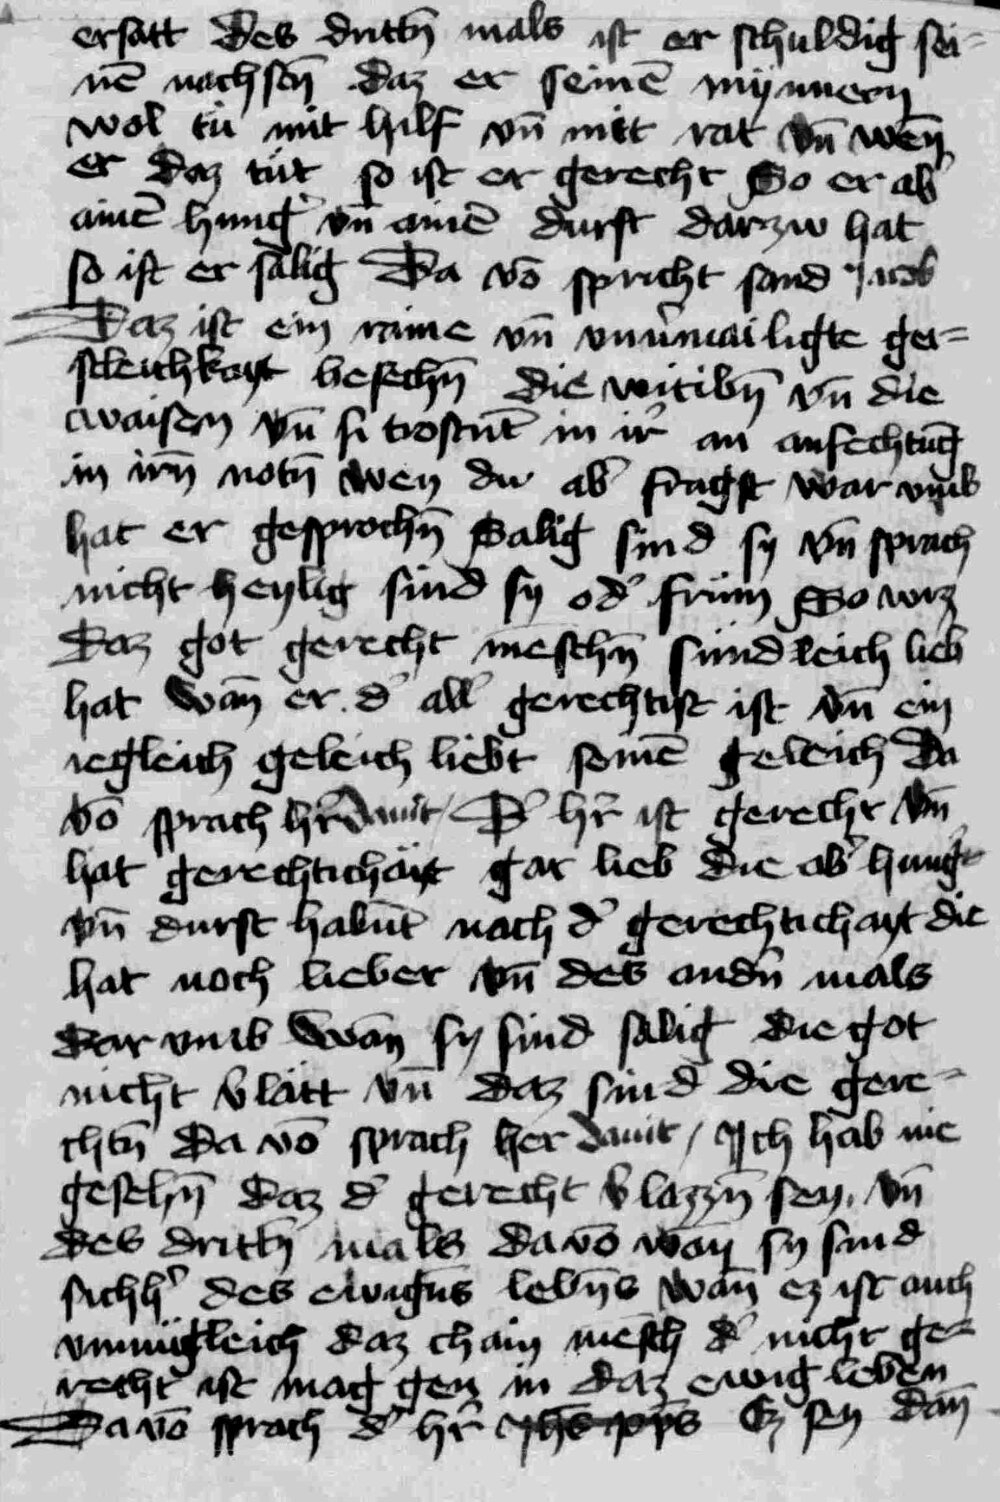 ersatt Des drittn̄ mals ist er schuldig sei=
nē nachsen̄ daz er seinē mynnern
wol tu mit hilf vn̄ mitt rat vn̄ wen̄
er daz tut so ist er gerecht So er ab̾
ainē hung̾ vn̄ ainē durst darzw hat
so ist er salig Da vō spricht sand Jacob
Daz ist ein raine vn̄ vnu̾mailigte gei=
stleichkayt besechn̄ die witibn̄ vn̄ die
waisen vn̄ si trostn̄t in ir̾ an anfechtūg
in irn̄ notn̄ wen du ab̾ fragst war vmb
hat er gesprochn̄ Salig sind sy vn̄ sprach
nicht heylig sind sy od̾ frum So wiz
Daz got gerecht mēschn̄ sundleich lieb
hat wan̄ er d̾ all̾ gerechtist ist vn̄ ein
iegleich geleich liebt seinē geleich Da
vō sprach hr̾ Dauit / D̾ hr̾ ist gerecht vn̄
hat gerechtichait gar lieb die ab̾ hung̾
vn̄ durst habn̄t nach d̾ gerechtichayt die
hat noch lieber vn̄ des andn̾ mals
dar vmb wan̄ sy sind salig die got
nicht v̾latt vn̄ daz sind die gere=
chtn̄ Da vō sprach her Dauit / Ich hab nie
gesehn̄ daz d̾ gerecht v̾lazzn̄ sey. vn̄
des drittn̄ mals da vō wan̄ sy sind
sichh̾ des ewign̄s lebn̄s wan̄ ez ist auch
vnmugleich daz chain mēsch d̾ nicht ge=
recht ist mag gen in daz ewig leben
Da vō sprach d̾ hr̾ jhs xp̄s Ez sey dan̄